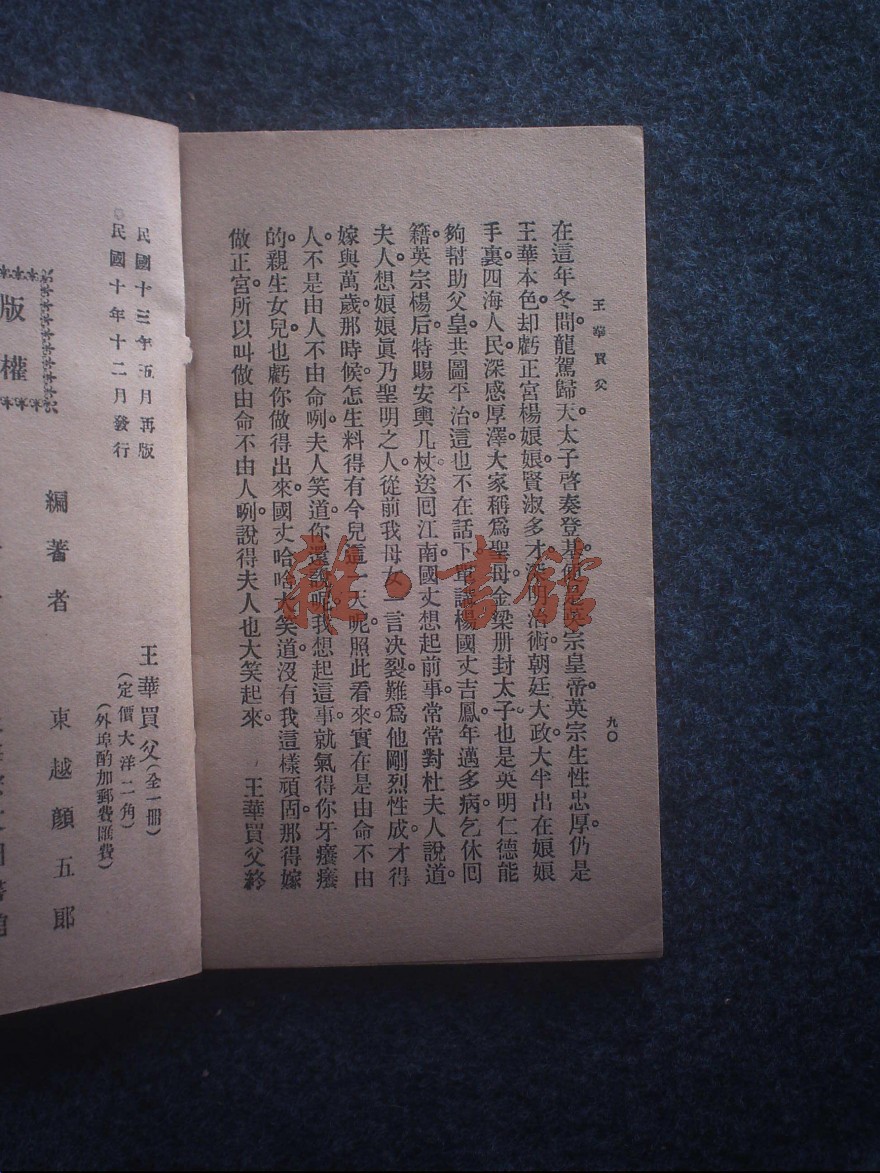 王華買父
九〇
在這年冬間龍駕歸天。太子啓奏登基。便是英宗皇帝。英宗生性忠厚。仍是
王華本色。却虧正宮楊娘娘賢淑多才。深明治術。朝廷大政。大半出在娘娘
手裏。四海人民。深感厚澤。大家稱爲聖母。金梁册封太子。也是英明仁德。能
夠幫助父皇。共圖平治。這也不在話下。單說楊國丈吉鳳。年邁多病。乞休囘
籍。英宗楊后特賜安輿几杖。送囘江南。國丈想起前事。常常對杜夫人說道。
夫人。想娘娘眞乃聖明之人。從前我母女一言決裂。難爲他剛烈性成。才得
嫁與萬歲。那時候怎生料得有今兒這一天呢。照此看來。實在是由命不由
人。不是由人不由命咧。夫人笑道。你還說呢。我想起這事。就氣得你牙癢癢
的。親生女兒也虧你做得出來。國丈哈哈大笑道。沒有我這樣頑固。那得嫁
做正宮。所以叫做由命不由人咧。說得夫人也大笑起來。 王華買父終
民國十三年五月再版
民國十年十二月發行
王華買父（全一册）
（定價大洋二角）
（外埠酌加郵費匯費）
編著者 東越顏五郎
版權
雜·書館